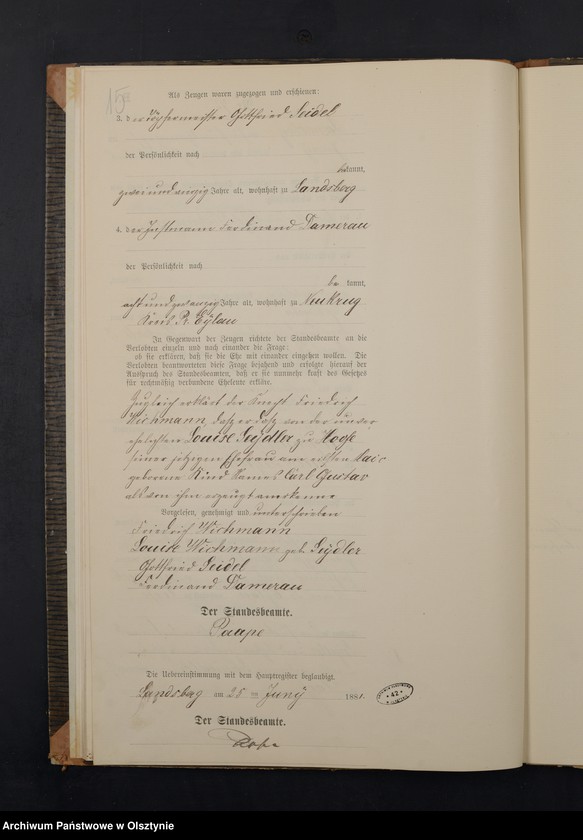 15
Als Zeugen waren zugezogen und erschienen:
3. der Töpfermeister Gottfried Seidel
der Persönlichkeit nach
bekannt,
zweiundvierzig Jahre alt, wohnhaft zu Landsberg
4. der Instmann Ferdinand Damerau
der Persönlichkeit nach
be kannt,
achtundzwanzig Jahre alt, wohnhaft zu Neukrug
Kreis Pr. Eylau
In Gegenwart der Zeugen richtete der Standesbeamte an die
Verlobten einzeln und nach einander die Frage:
ob sie erklären, daß sie die Ehe mit einander eingehen wollen. Die
Verlobten beantworteten diese Frage bejahend und erfolgte hierauf der
Ausspruch des Standesbeamten, daß er sie nunmehr kraft des Gesetzes
für rechtmäßig verbundene Eheleute erkläre.
Zugleich erklärt der Knecht Friedrich
Wichmann, daß er das von der unver
ehelichten Louise Seydler zu Hoofe
seiner jetzigen Ehefrau am elften Mai
geborene Kind Namens Carl Gustav
als von ihm erzeugt anerkenne
Vorgelesen, genehmigt und unterschrieben
Friedrich Wichmann
Louise Wichmann geb. Seydler
Gottfried Seidel
Ferdinand Damerau
Der Standesbeamte.
Paape
Die Uebereinstimmung mit dem Hauptregister beglaubigt.
Landsberg am 28 ten Juny 188
Der Standesbeamte.
42
Archiwum Państwowe w Olsztynie